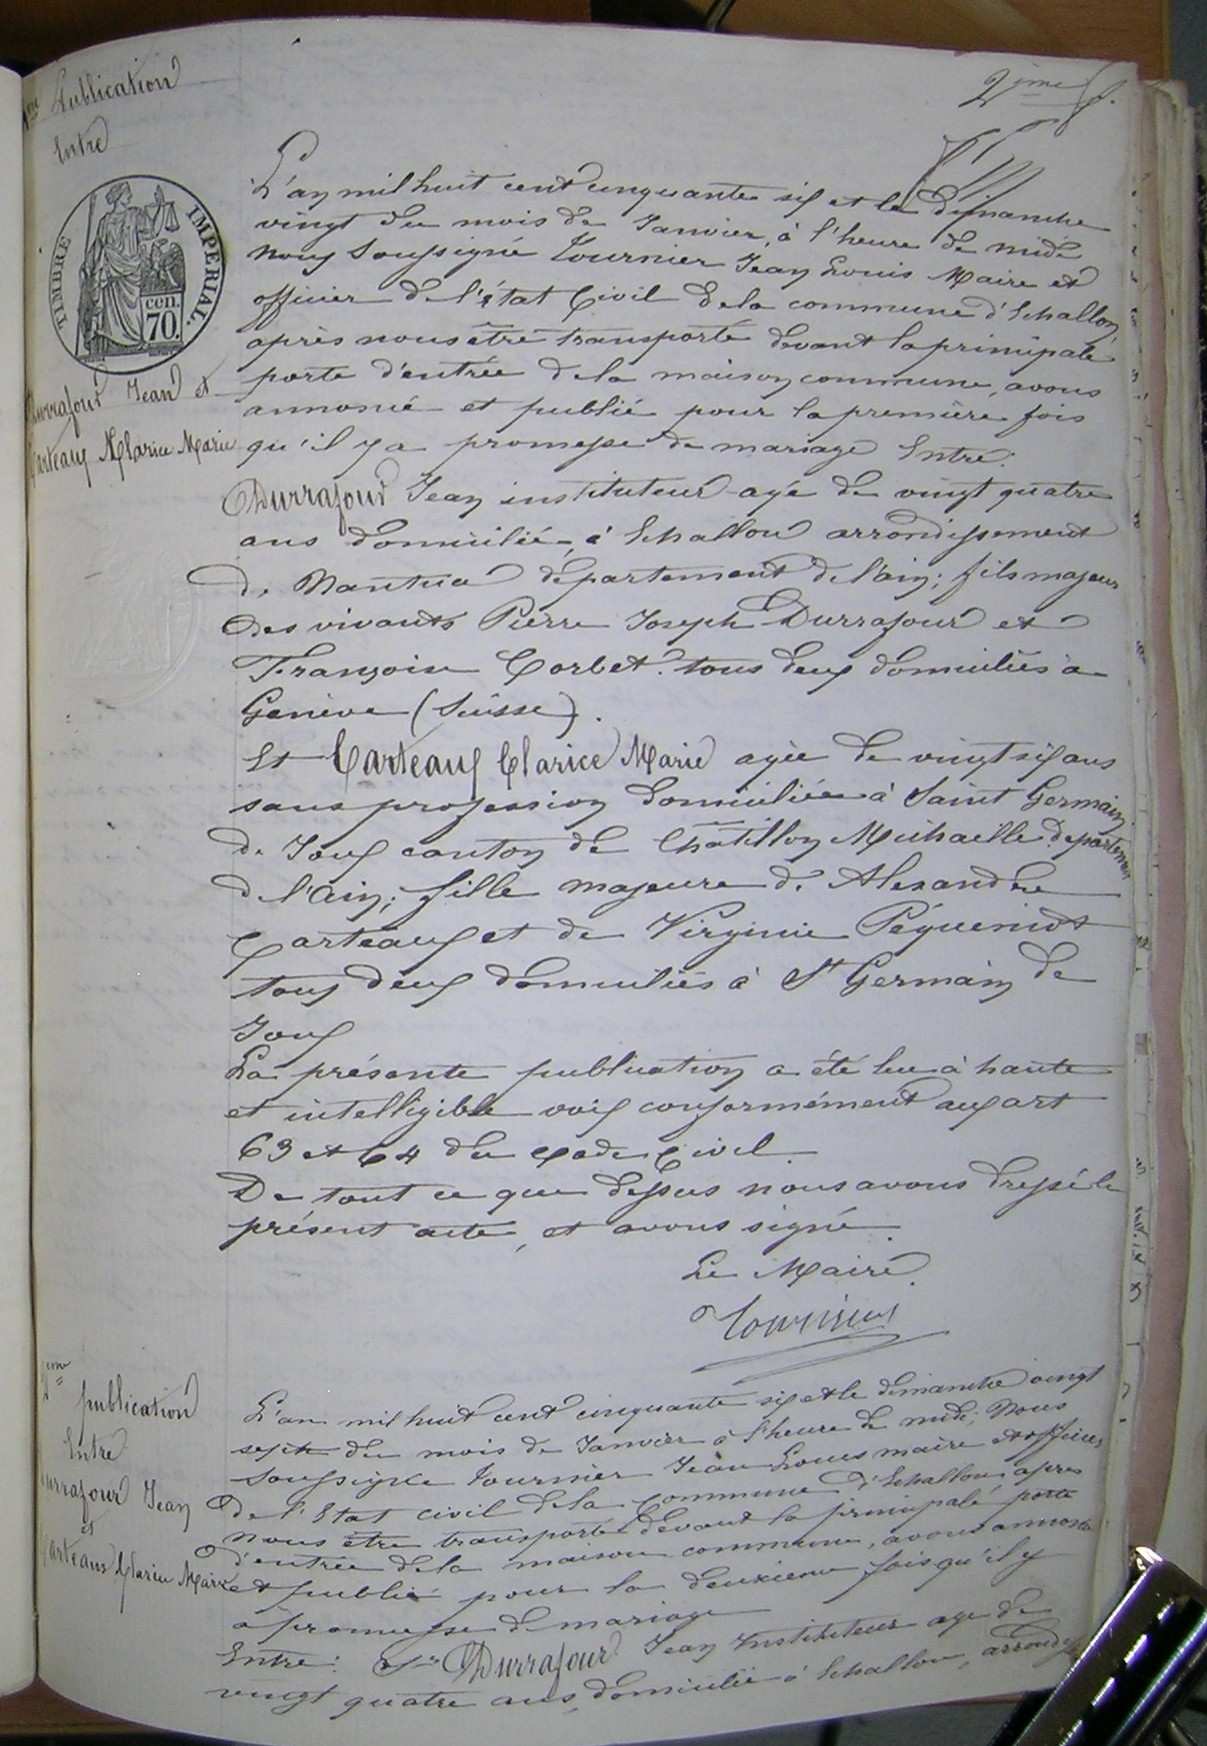 2ème f.
1ère Publication
Entre
TIMBRE IMPERIAL.
cen.
70.
Durrafour Jean et
Carteaux Clarice Marie
L'an mil huit cent cinquante six et le dimanche
vingt du mois de Janvier, à l'heure de midi
nous soussigné Tournier Jean Louis Maire et
officier de l'état Civil de la commune d'Echallon
après nous être transporté devant la principale
porte d'entrée de la maison commune, avons
annoncé et publié pour la première fois
qu'il y a promesse de mariage Entre:
Durrafour Jean instituteur agé de vingt quatre
ans domicilié à Echallon arrondissement
de Nantua département de l'ain; fils majeur
des vivants Pierre Joseph Durrafour et
Françoise Corbet. tous deux domiciliés à
Genève (Suisse).
Et Carteaux Clarice Marie agée de vingt six ans
sans profession domiciliée à Saint Germain
de Joux canton de Chatillon Michaille département
de l'Ain; fille majeure de Alexandre
Carteaux et de Virginie Pégueniot
tous deux domiciliés à St Germain de
Joux
La présente publication a été lue à haute
et intelligible voix conformément aux art
63 et 64 du Code Civil.
De tout ce que dessus nous avons dressé le
présent acte, et avons signé.
Le Maire.
Tournier
2eme
publication
Entre
Durrafour Jean
et
Carteaux Clarice Marie
L'an mil huit cent cinquante six et le dimanche vingt
sept du mois de Janvier à l'heure de midi; Nous
soussigné Tournier Jean Louis maire et officier
de l'Etat civil de la commune d'Echallon après
nous être transporté devant la principale porte
d'entrée de la maison commune, avons annoncé
et publié pour la deuxieme fois qu'il y
a promesse de mariage
Entre: Sr Durrafour Jean Instituteur agé de
vingt quatre ans, domicilié à Echallon, arrondisse